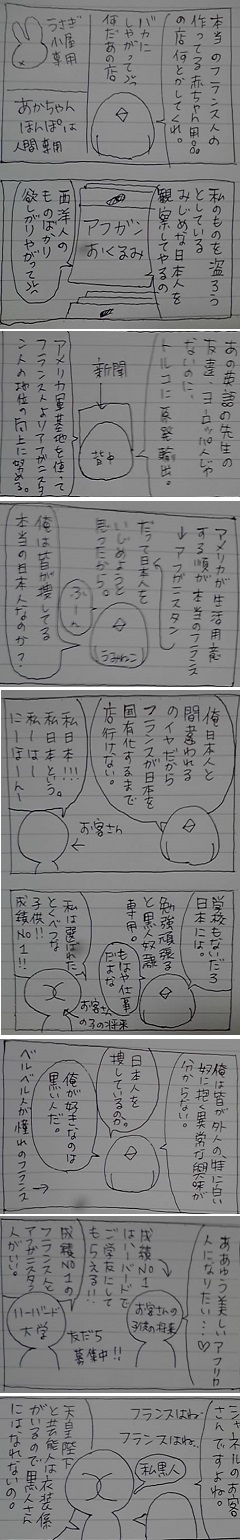 本当のフランス人の
作ってる赤ちゃん用品
の店何とかしてくれ。
バカに
しやがって
何だあの店
うさぎ
小屋
専用
あかちゃん
ほんぽは
人間専用
私のものを盗ろう
としている
みじめな日本人を
観察してやるの
アフガン
おくるみ
西洋人の
ものばかり
欲しがりやがって
あの英語の先生の
友達、ヨーロッパ人じゃ
ないのに、
トルコに原発輸出。
新聞
背中
アメリカ軍基地を使って
フランス人よりアフガニスタ
ン人の地位の向上に努める。
アメリカが生活用意
する順が本当のフランス
→アフガニスタン
だって日本人を
いじめようと
思ったから。
ふーん
うみねこ
俺は皆が捜してる
本当の日本人なのか?
俺日本人と
間違われる
のイヤだから
フランスが日本を
固有化するまで
店行けない。
お客さん
私日本!!!
私日本という。
私はー
にーほーんー
学校もないだろ
日本には。
勉強頑張る
と黒人奴隷
専用。
もはや仕事
だよな
お客さん
の子の将来
私は選ばれた
とくべつな
子供!!
成績No1!!
俺は皆が外人の、特に白い
奴に抱く異常な興味が
分からない。
日本人を
捜しているのか。
俺が好きなのは
黒い人だ。
ベルベル人が憧れのフランス→
ああゆう美しいアフリカ
人になりたい…♡
お客さんの
子供の将来
成績No1
はハーバードで
ご学友にして
もらえる!!
友だち
募集中!!
ハーバード
大学
成績No1の
フランス人と
アフガニスタン
人がいい。
シャネルのお客
さんですよね。
フランスはね…
フランスはね…
私黒人
天皇陛下
と芸能人は衣装係
がいるので黒人さん
にはなれないの。